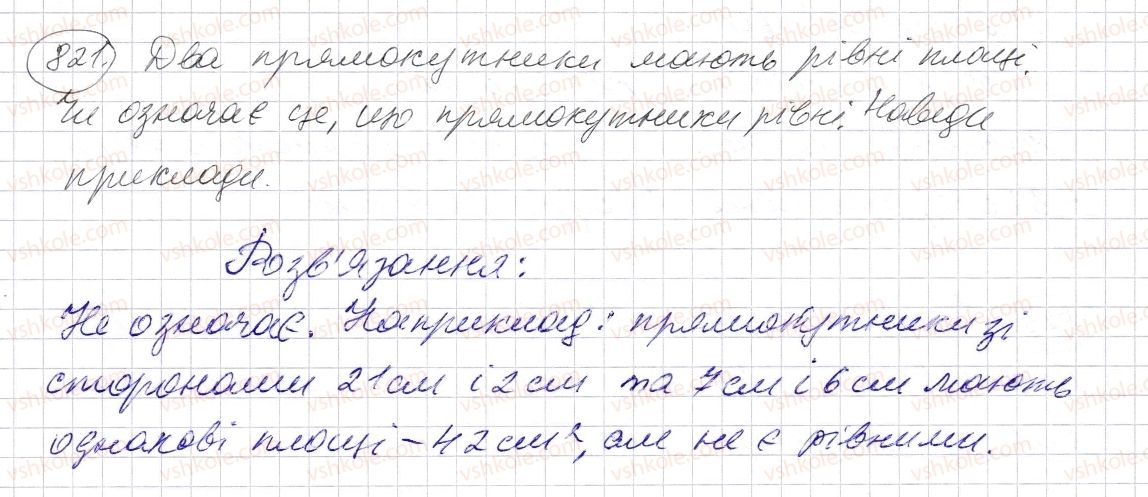 821. Два прямокутники мають рівні площі.
Чи означає це, що прямокутники рівні. Наведи
приклади.
Розв'язання:
Не означає. Наприклад: прямокутники зі
сторонами 21см і 2см та 7см і 6см мають
однакові площі – 42см², але не є рівними.